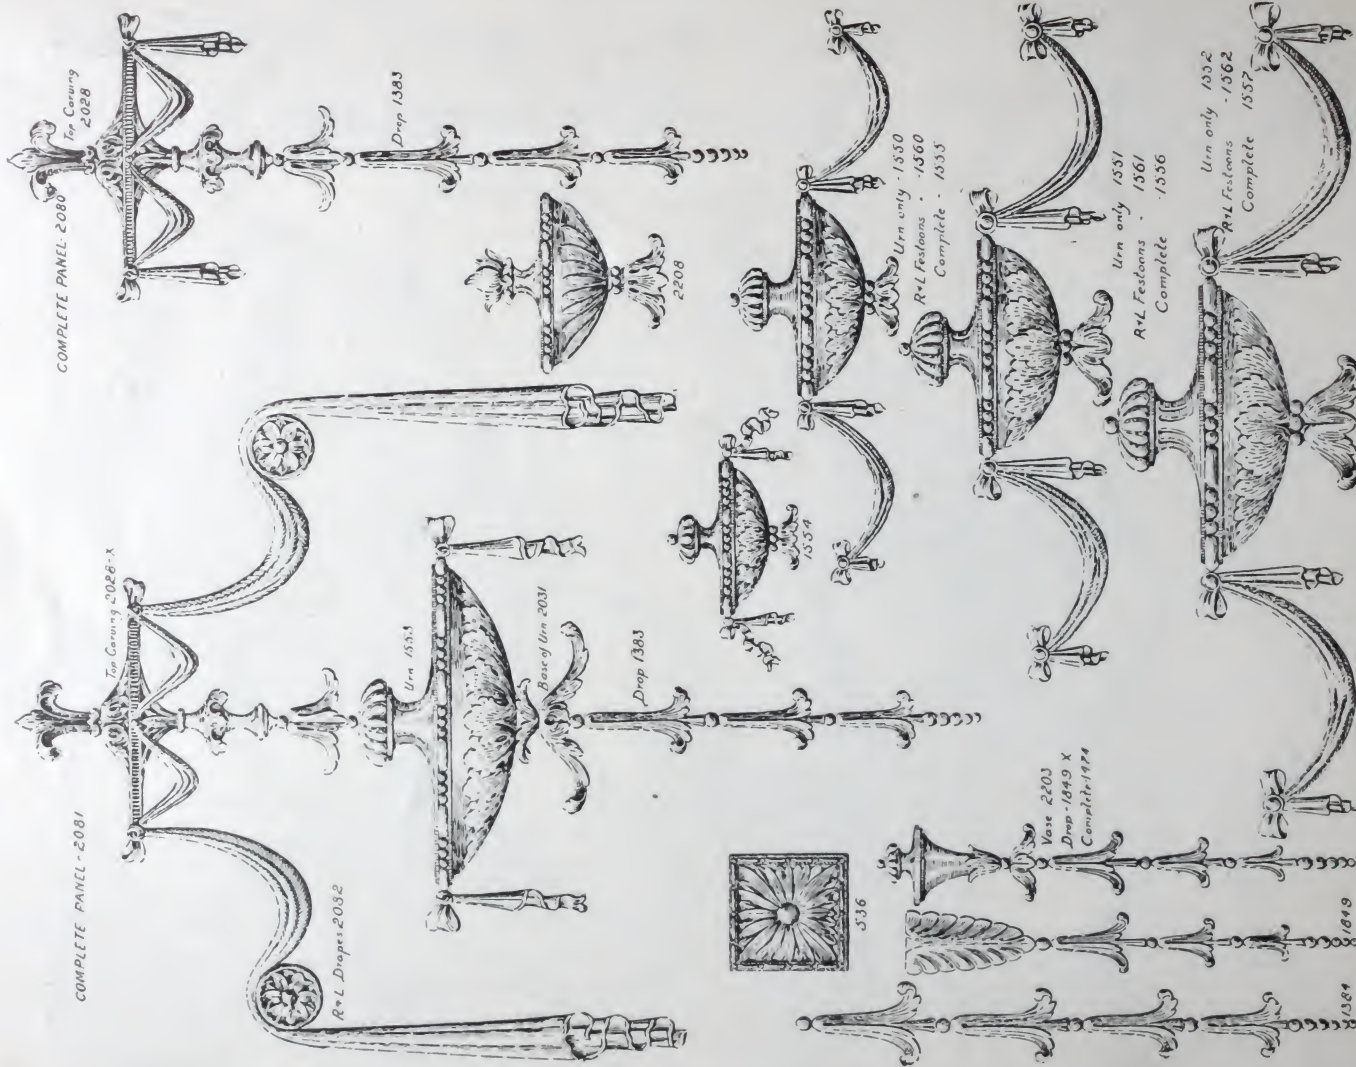 COMPLETE PANEL - 2081
Top Carving 2028-X
R+L Drapes 2032
Urn 1553
Base of Urn 2031
Drop 1383
COMPLETE PANEL - 2080
Top Carving
2028
Drop 1383
2208
1554
Urn only - 1550
R+L Festoons - -1560
Complete - 1555
Urn only 1551
R+L Festoons - 1561
Complete -1556
Urn only 1552
R+L Festoons -1562
Complete 1557
536
Vase 2203
Drop - 1849 X
Complete 1474
1849
1384